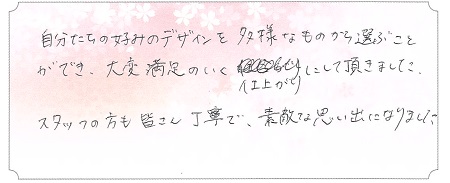 自分たちの好みのデザインを多様なものから選ぶこと
ができ、大変満足のいく仕上がりにして頂きました。
スタッフの方も皆さん丁寧で、素敵な思い出になりました